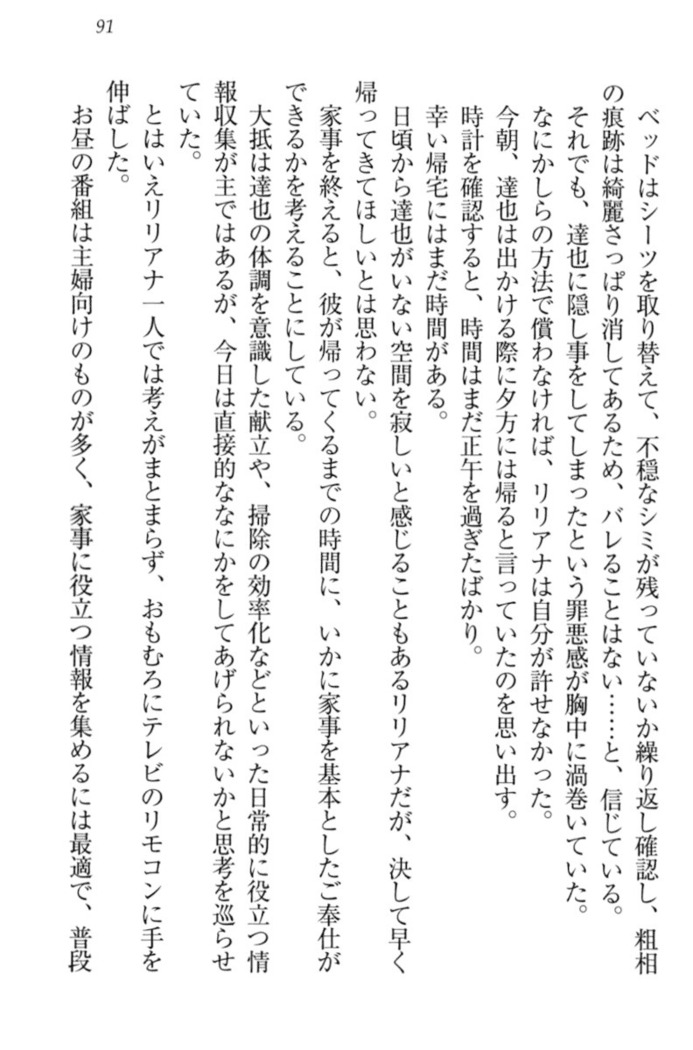 91
ベッドはシーツを取り替えて、不穏なシミが残っていないか繰り返し確認し、粗相
の痕跡は綺麗さっぱり消してあるため、バレることはない……と、信じている。
それでも、達也に隠し事をしてしまったという罪悪感が胸中に渦巻いていた。
なにかしらの方法で償わなければ、リリアナは自分が許せなかった。
今朝、達也は出かける際に夕方には帰ると言っていたのを思い出す。
時計を確認すると、時間はまだ正午を過ぎたばかり。
幸い帰宅にはまだ時間がある。
日頃から達也がいない空間を寂しいと感じることもあるリリアナだが、決して早く
帰ってきてほしいとは思わない。
家事を終えると、彼が帰ってくるまでの時間に、いかに家事を基本としたご奉仕が
できるかを考えることにしている。
大抵は達也の体調を意識した献立や、掃除の効率化などといった日常的に役立つ情
報収集が主ではあるが、今日は直接的ななにかをしてあげられないかと思考を巡らせ
ていた。
とはいえリリアナ一人では考えがまとまらず、おもむろにテレビのリモコンに手を
伸ばした。
お昼の番組は主婦向けのものが多く、家事に役立つ情報を集めるには最適で、普段